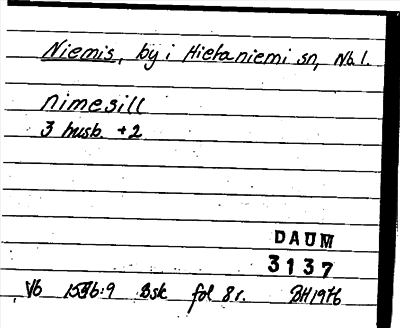 Niemis, by i Hietaniemi sn, Nb l.
nimesill
3 husb. +2
DAUM
3137
Vb 1546:9 Bsk fol 8r. BH1976